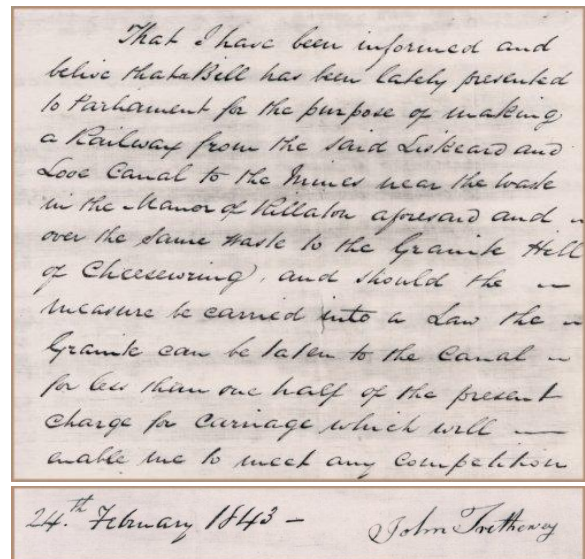 That I have been informed and
belive that a Bill has been lately presented
to Parliament for the purpose of making
a Railway from the said Liskeard and
Looe Canal to the Mines near the waste
in the Manor of Rillaton aforesaid and —
over the same waste to the Granite Hill
of Cheesewring, and should the —
measure be carried into a Law the —
Granite can be taken to the Canal —
for less than one half of the present
charge for carriage which will —
enable me to meet any competition
24.th February 1843 — John Trethewey